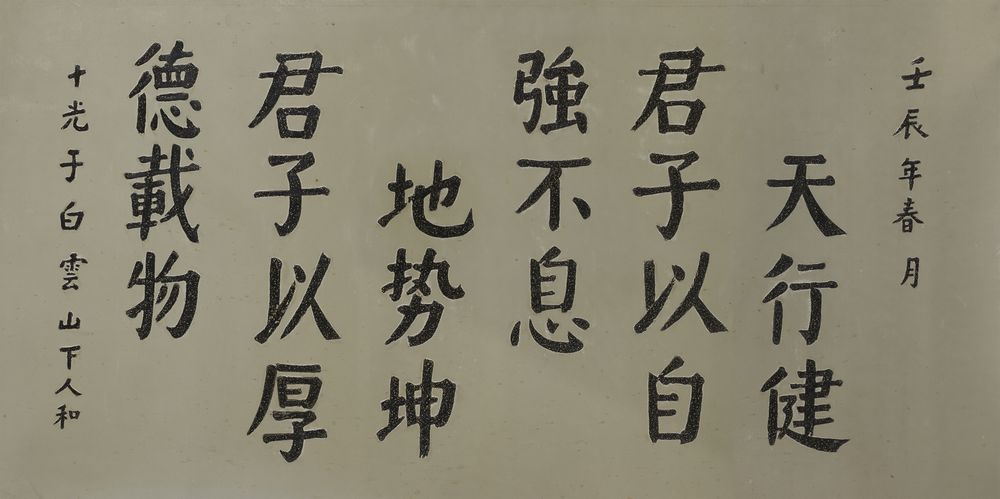 壬辰年春月
天行健
君子以自
強不息
地势坤
君子以厚
德載物
十光于白雲山下人和